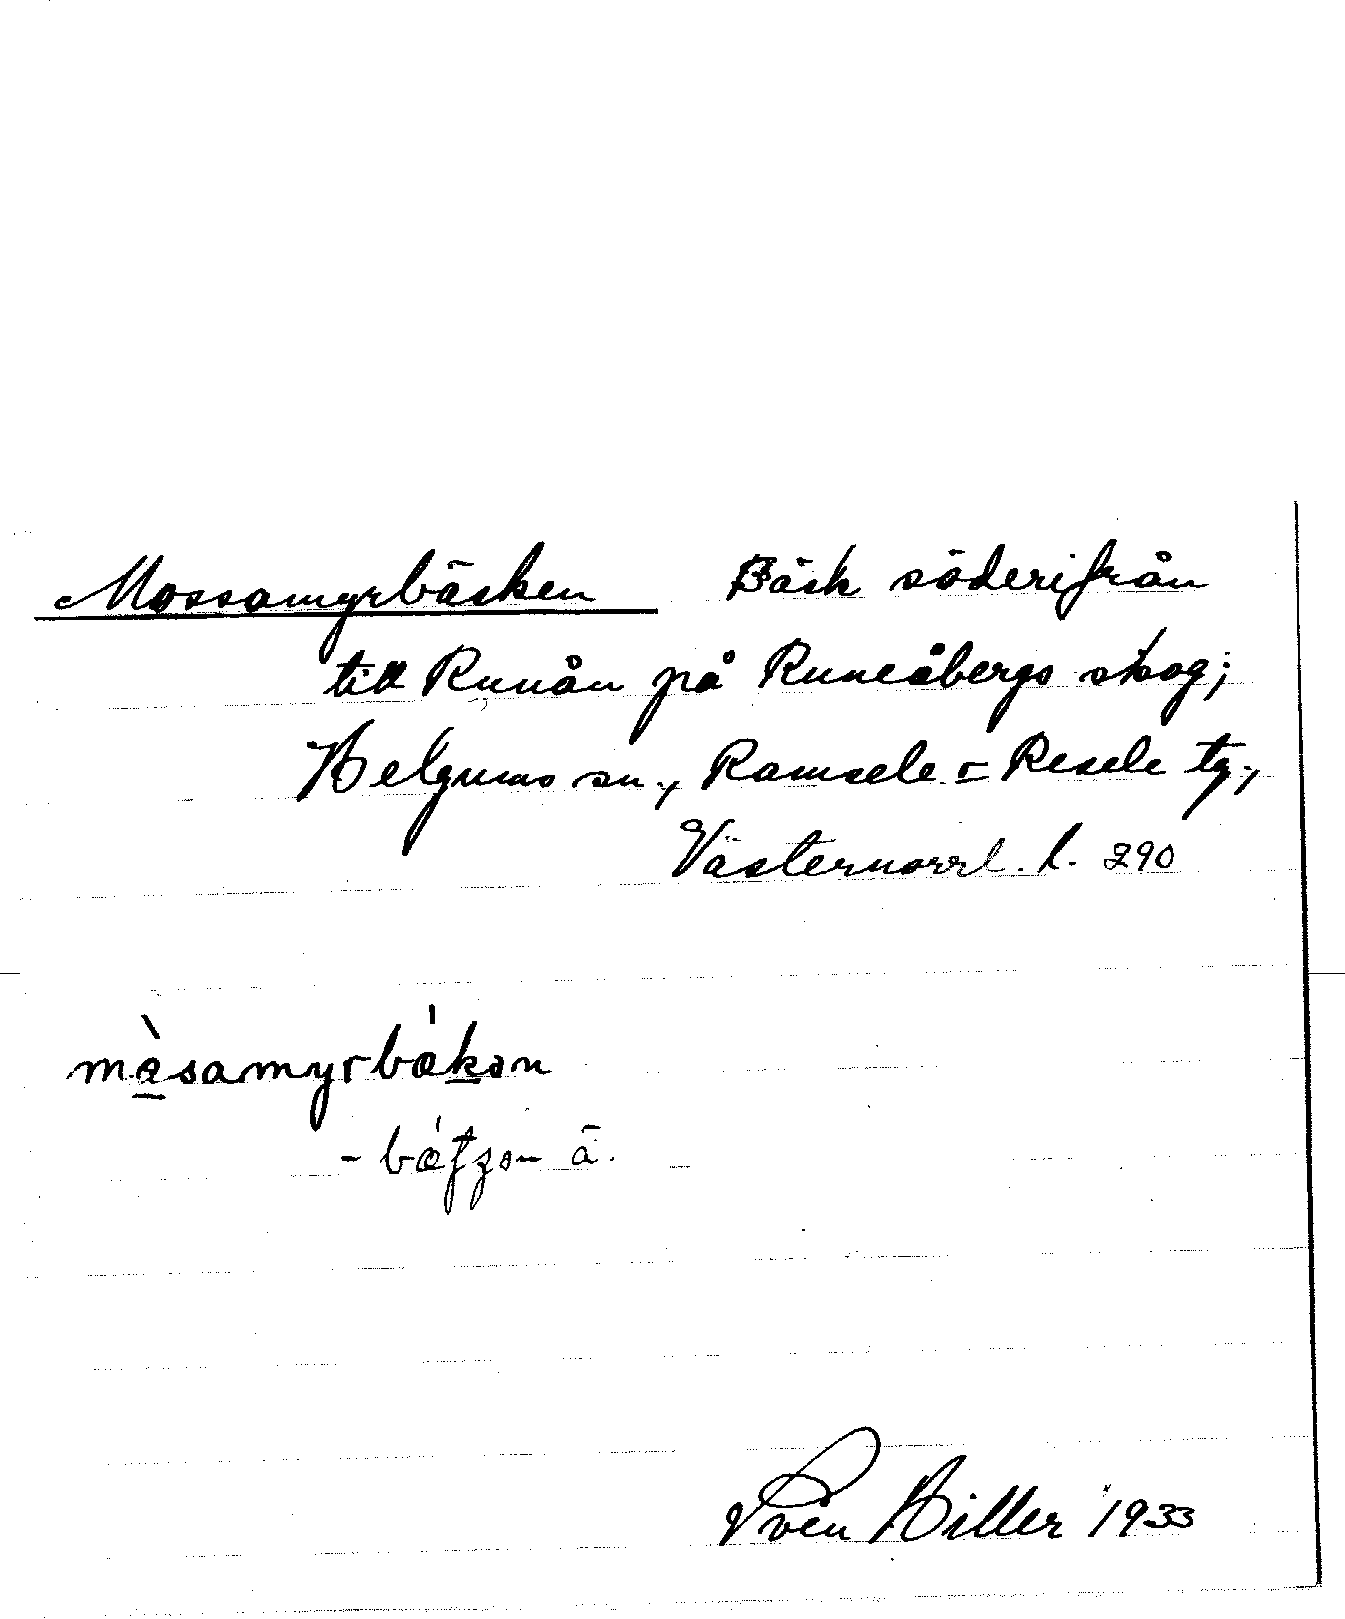 Mossamyrbäcken Bäck söderifrån
till Runån på Runeåbergs skog;
Helgums sn., Ramsele o Resele tg.,
Västernorrl. l. 290
mòsamyrbǽkən
Sven Hiller 1933